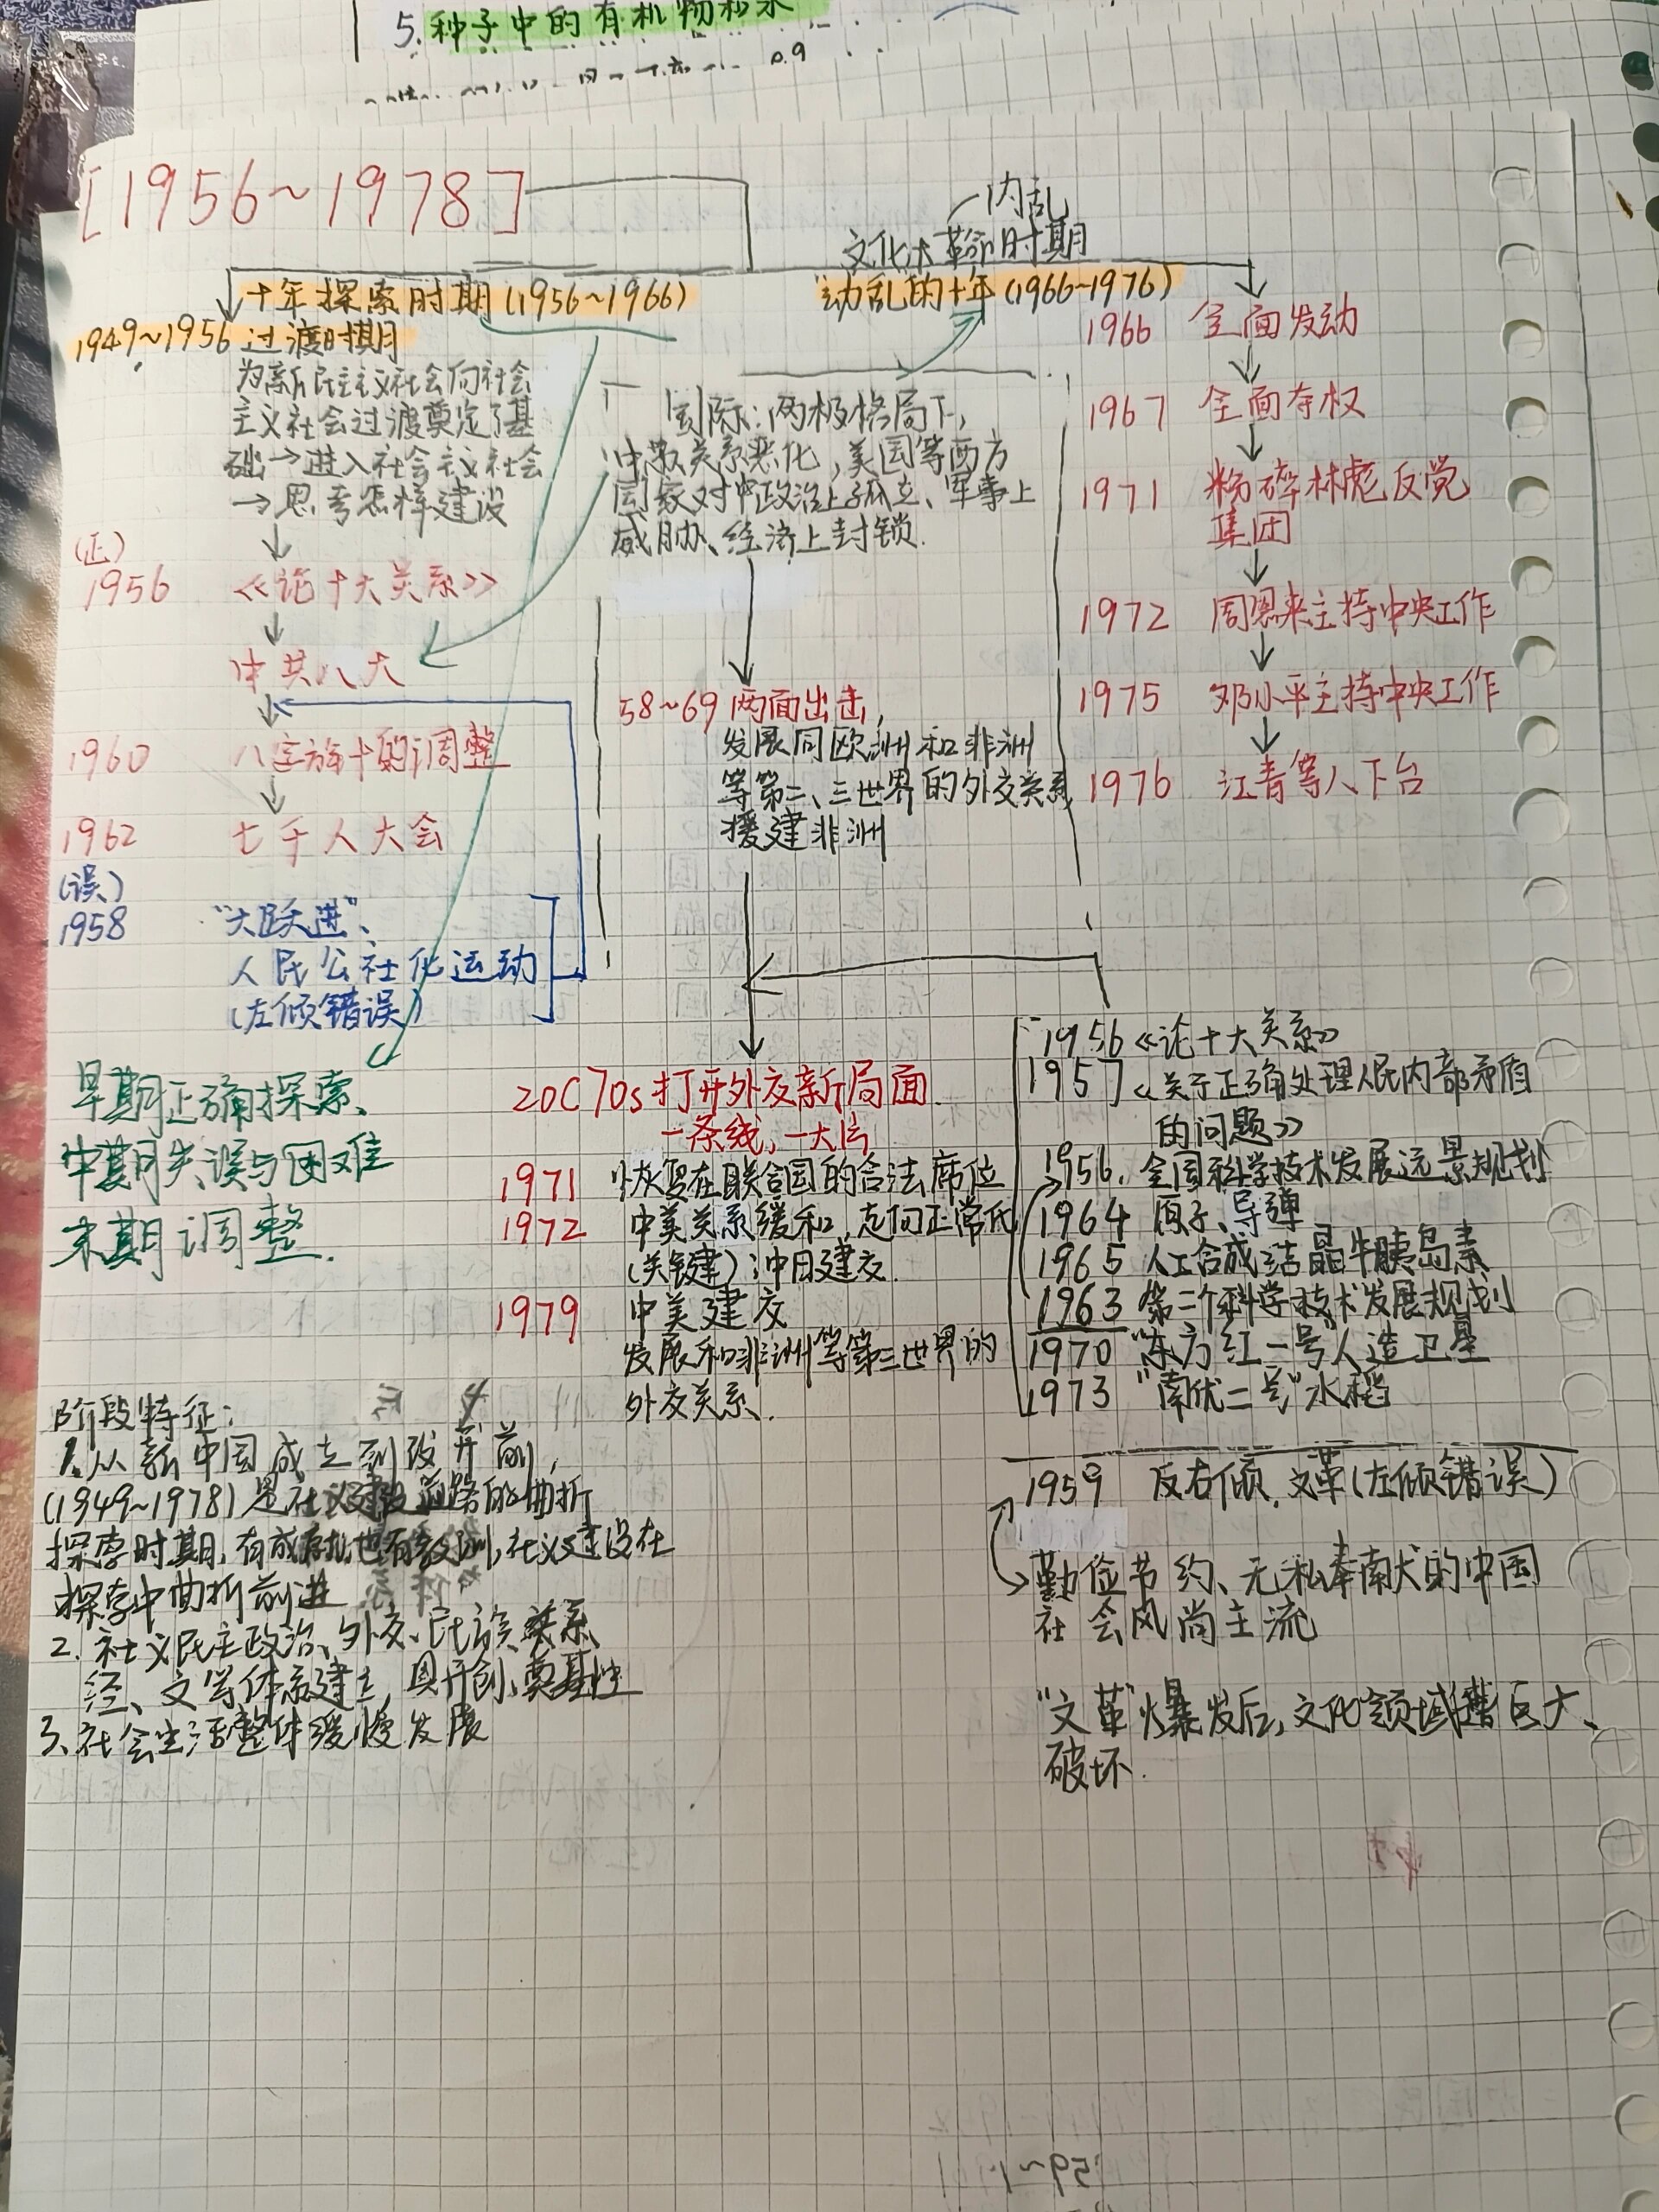 5.种子中的有机物和水
[1956~1978]
内乱
文化大革命时期
十年探索时期(1956~1966)
动乱的十年(1966~1976)
1949~1956过渡时期
为新民主主义社会向社会
主义社会过渡奠定了基
础→进入社会主义社会
→思考怎样建设
(正)
1956 《论十大关系》
中共八大
1960 八字方针的调整
1962 七千人大会
(误)
1958 “大跃进”、
人民公社化运动
(左倾错误)
早期正确探索、
中期失误与困难
末期调整.
国际:两极格局下,
中苏关系恶化,美国等西方
国家对中政治上孤立、军事上
威胁、经济上封锁.
58~69两面出击,
发展同欧洲和非洲
等第二、三世界的外交关系
援建非洲
20C70s打开外交新局面.
一条线,一大片
1971 恢复在联合国的合法席位
1972 中美关系缓和,走向正常化
(关键);中日建交.
1979 中美建交
发展和非洲等第三世界的
外交关系.
1966 全面发动
1967 全面夺权
1971 粉碎林彪反党
集团
1972 周恩来主持中央工作
1975 邓小平主持中央工作
1976 江青等人下台
1956《论十大关系》
1957《关于正确处理人民内部矛盾
的问题》
1956.全国科学技术发展远景规划
1964 原子、导弹
1965 人工合成结晶牛胰岛素
1963 第二个科学技术发展规划
1970 “东方红一号”人造卫星
1973 “南优二号”水稻
1959 反右倾.文革(左倾错误)
勤俭节约、无私奉献的中国
社会风尚主流
“文革”爆发后,文化领域遭巨大
破坏.
阶段特征:
1.从新中国成立到改开前,
(1949~1978)是社义建设道路的曲折
探索时期,有成就也有教训,社义建设在
探索中曲折前进.
2.社义民主政治、外交、民族关系
经、文等体系建立,具开创、奠基性
3.社会生活整体缓慢发展